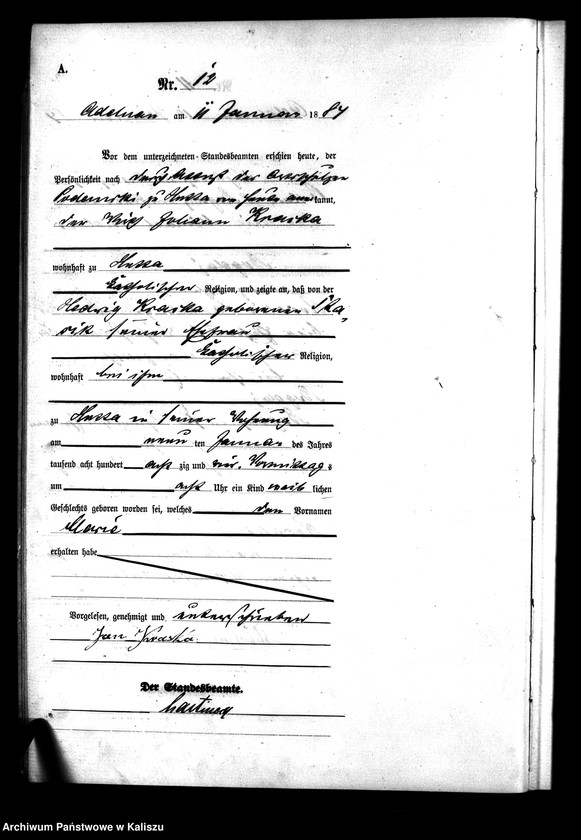 A.
Nr. 12
Adelnau am 11 Januar 1884
Vor dem unterzeichneten Standesbeamten erschien heute, der
Persönlichkeit nach durch Attest der Ortsschulzen
zu Hutta von heute anerkannt,
der Wirt Johann Kraska
wohnhaft zu Hutta
katholischer Religion, und zeigte an, daß von der
Hedwig Kraska geborenen Ska-
rik seiner Ehefrau
katholischer Religion,
wohnhaft bei ihm
zu Hutta in seiner Wohnung
am neun ten Januar des Jahres
tausend acht hundert acht zig und vier, Vormittag s
um acht Uhr ein Kind weib lichen
Geschlechts geboren worden sei, welches den Vornamen
Marie
erhalten habe
Vorgelesen, genehmigt und unterschrieben
Jan Kraska.
Der Standesbeamte.
Archiwum Państwowe w Kaliszu